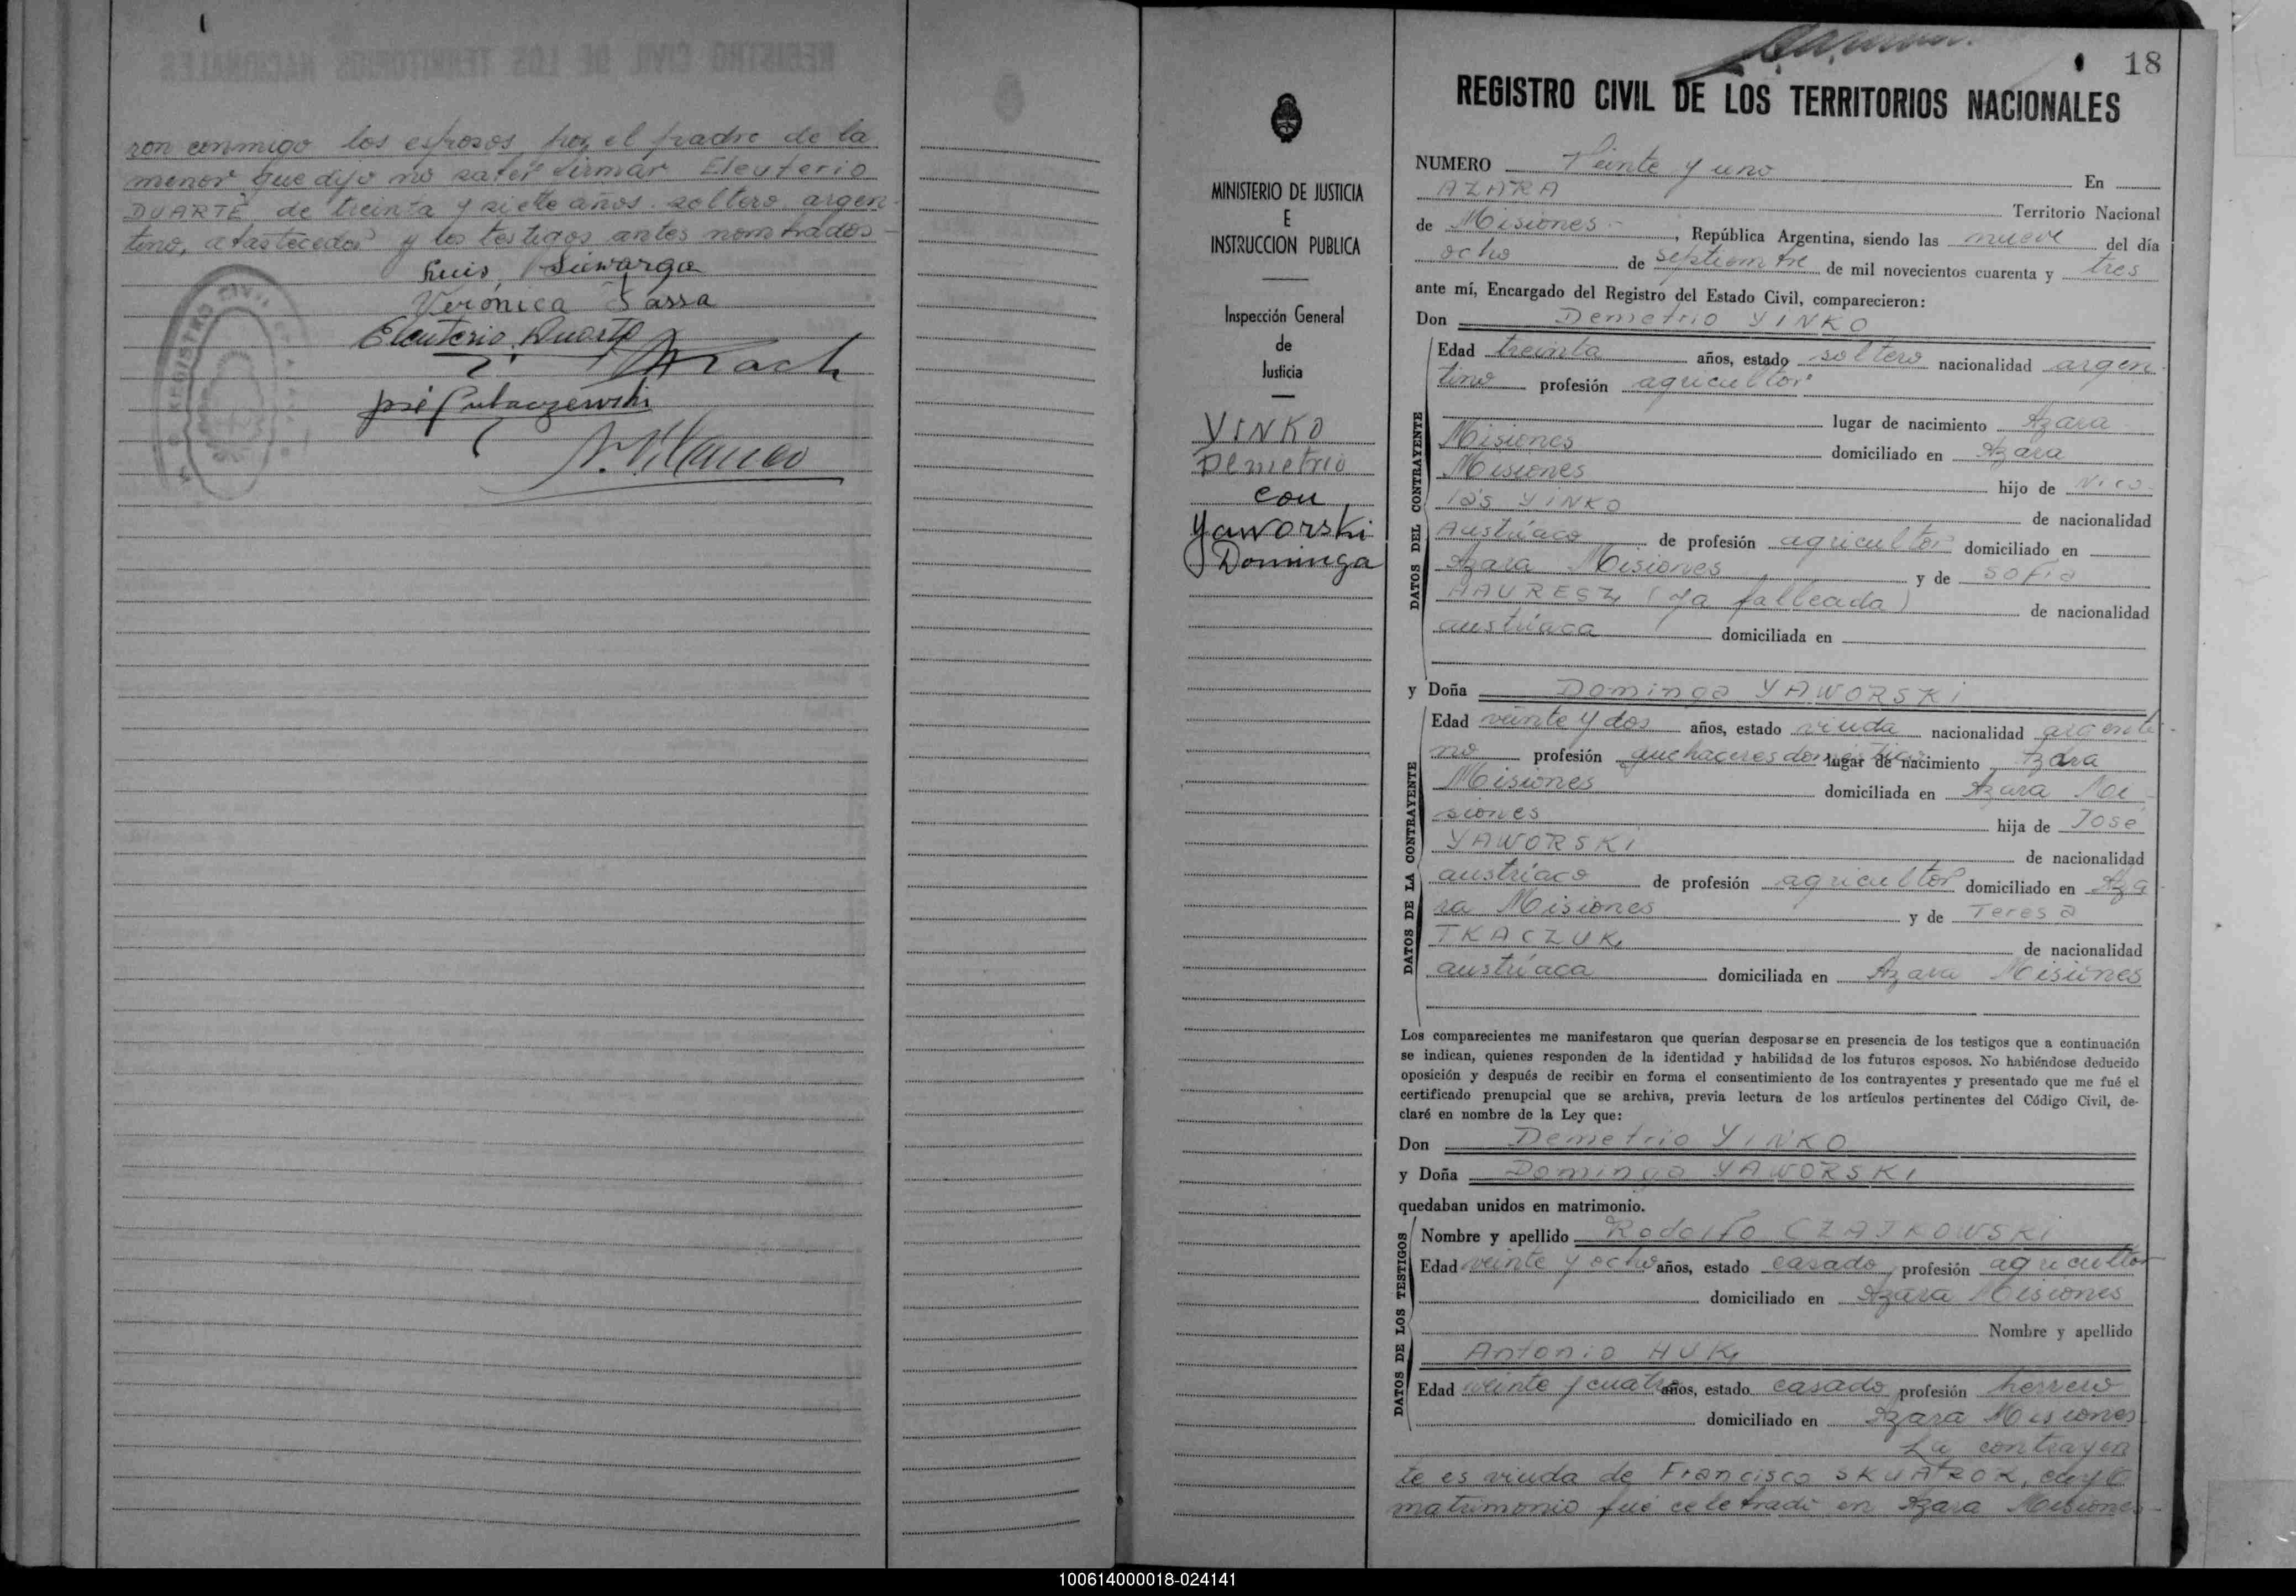 ron conmigo los esposos, por el padre de la
menor que dijo no saber firmar Eleuterio
DUARTE de treinta y siete años. soltero. argen-
tino, abastecedor y los testigos antes nombrados-
Luis
Verónica Sassa
Eleuterio Duarte
José
REGISTRO CIVIL
18
REGISTRO CIVIL DE LOS TERRITORIOS NACIONALES
MINISTERIO DE JUSTICIA
E
INSTRUCCION PUBLICA
Inspección General
de
Justicia
YINKO
Demetrio
con
Yaworski
Dominga
NUMERO Veinte y uno En
AZARA Territorio Nacional
de Misiones-, República Argentina, siendo las nueve del día
ocho de septiembre de mil novecientos cuarenta y tres
ante mí, Encargado del Registro del Estado Civil, comparecieron:
Don Demetrio YINKO
DATOS DEL CONTRAYENTE
Edad treinta años, estado soltero nacionalidad argen-
tino profesión agricultor
lugar de nacimiento Azara
Misiones domiciliado en Azara
Misiones hijo de Nico-
lás YINKO de nacionalidad
Austríaco de profesión agricultor domiciliado en
Azara Misiones y de Sofía
(ya falleada) de nacionalidad
austríaca domiciliada en
y Doña Dominga YAWORSKI
DATOS DE LA CONTRAYENTE
Edad veinte y dos años, estado viuda nacionalidad argenti-
no profesión quehaceres domésticos lugar de nacimiento Azara
Misiones domiciliada en Azara Mi-
siones hija de José
YAWORSKI de nacionalidad
austríaco de profesión agricultor domiciliado en Aza-
ra Misiones y de Teresa
TKACZUK de nacionalidad
austríaca domiciliada en Azara Misiones
Los comparecientes me manifestaron que querían desposarse en presencia de los testigos que a continuación
se indican, quienes responden de la identidad y habilidad de los futuros esposos. No habiéndose deducido
oposición y después de recibir en forma el consentimiento de los contrayentes y presentado que me fué el
certificado prenupcial que se archiva, previa lectura de los artículos pertinentes del Código Civil, de-
claré en nombre de la Ley que:
Don Demetrio YINKO
y Doña Dominga YAWORSKI
quedaban unidos en matrimonio.
DATOS DE LOS TESTIGOS
Nombre y apellido Rodolfo CZAJKOWSKI
Edad veinte y ocho años, estado casado, profesión agricultor
domiciliado en Azara Misiones
Nombre y apellido
Antonio HUK
Edad veinte y cuatro años, estado casado profesión herrero
domiciliado en Azara Misiones
La contrayen
te es viuda de Francisco cuyo
matrimonio fué celebrado en Azara Misiones-
100614000018-024141